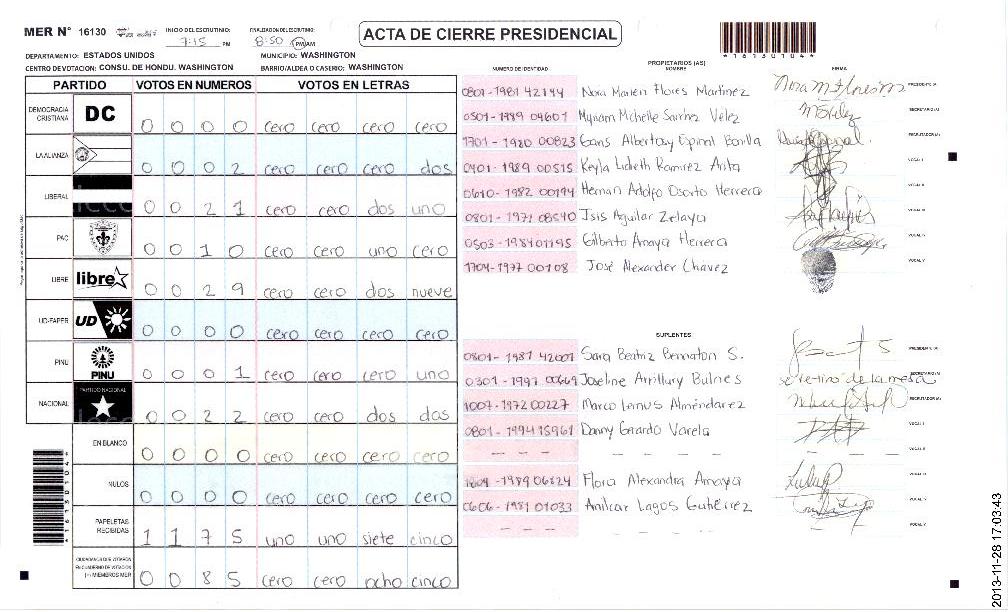 MER N° 16130
INICIO DEL ESCRUTINIO: 7:15 PM
FINALIZACION DEL ESCRUTINIO: 8:50 PM/AM
ACTA DE CIERRE PRESIDENCIAL
*16130104*
DEPARTAMENTO: ESTADOS UNIDOS
MUNICIPIO: WASHINGTON
CENTRO DE VOTACION: CONSU. DE HONDU. WASHINGTON
BARRIO/ALDEA O CASERIO: WASHINGTON
PARTIDO VOTOS EN NUMEROS VOTOS EN LETRAS
DEMOCRACIA CRISTIANA DC 0 0 0 0 cero cero cero cero
LA ALIANZA 0 0 0 2 cero cero cero dos
LIBERAL 0 0 2 1 cero cero dos uno
PAC 0 0 1 0 cero cero uno cero
LIBRE libre 0 0 2 9 cero cero dos nueve
UD-FAPER UD 0 0 0 0 cero cero cero cero
PINU PINU 0 0 0 1 cero cero cero uno
NACIONAL PARTIDO NACIONAL 0 0 2 2 cero cero dos dos
EN BLANCO 0 0 0 0 cero cero cero cero
NULOS 0 0 0 0 cero cero cero cero
PAPELETAS RECIBIDAS 1 1 7 5 uno uno siete cinco
CIUDADANOS QUE VOTARON EN CUADERNO DE VOTACION (+) MIEMBROS MER 0 0 8 5 cero cero ocho cinco
*16130104*
NUMERO DE IDENTIDAD
PROPIETARIOS (AS)
NOMBRE
FIRMA
0801-1981 42144 Nora Marien Flores Martinez PRESIDENTE(A)
0501-1989 04601 Myriam Michelle Velez SECRETARIO(A)
1701-1980 00823 Bonilla ESCRUTADOR(A)
0401-1989 00515 Keyla Lideth Ramirez VOCAL I
0610-1982 00194 Hernan Adolfo Osorto Herrera VOCAL II
0801-1971 08540 Isis Aguilar Zelaya VOCAL III
0503-198401195 Gilberto Amaya Herrera VOCAL IV
1704-1977 00108 José Alexander Chavez VOCAL V
SUPLENTES
0801-1987 42007 Sara Beatriz S. PRESIDENTE(A)
0301-1997 00669 Joseline Bulnes secretario de la mesa SECRETARIO(A)
1007-1972 00227 Marco Lemus Almendarez ESCRUTADOR(A)
0801-1994 15961 Danny Gerardo Varela VOCAL I
– – – – – – – VOCAL II
1989 06824 Flora Alexandra Amaya VOCAL III
0606-1981 01033 Amilcar Lagos Gutiérrez VOCAL IV
– – – – – – – VOCAL V
2013-11-28 17:03:43